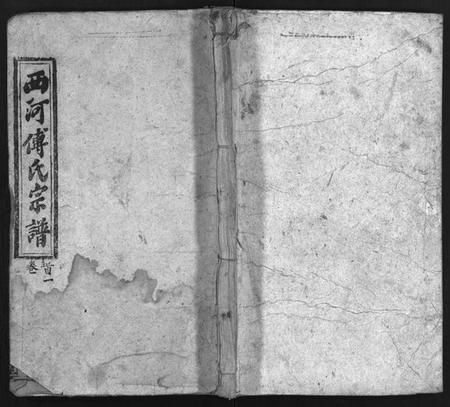 西河傅氏宗譜
卷首一